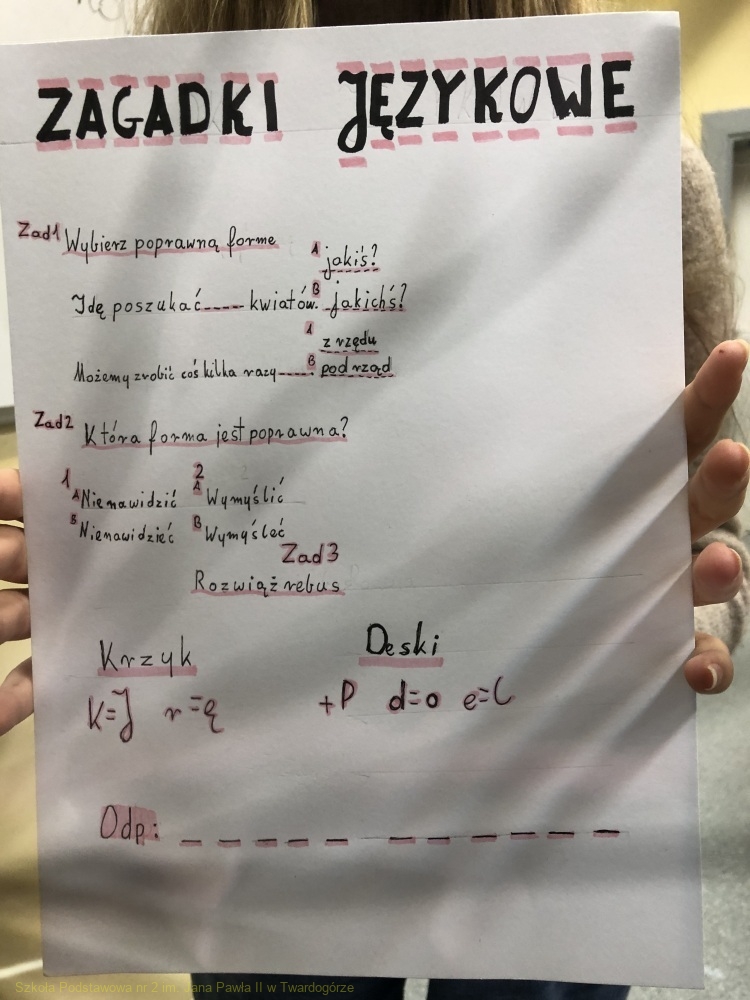 ZAGADKI JĘZYKOWE
Zad1 Wybierz poprawną forme
A jakiś?
Idę poszukać ----- kwiatów. B jakichś?
A z rzędu
Możemy zrobić coś kilka razy -----. B pod rząd
Zad2 Która forma jest poprawna?
1 2
A Nienawidzić A Wymyślić
B Nienawidzieć B Wymyśleć
Zad3
Rozwiąż rebus
Krzyk Deski
K=J r=ę +P d=o e=l
Odp: _ _ _ _ _ _ _ _ _ _ _
Szkoła Podstawowa nr 2 im. Jana Pawła II w Twardogórze